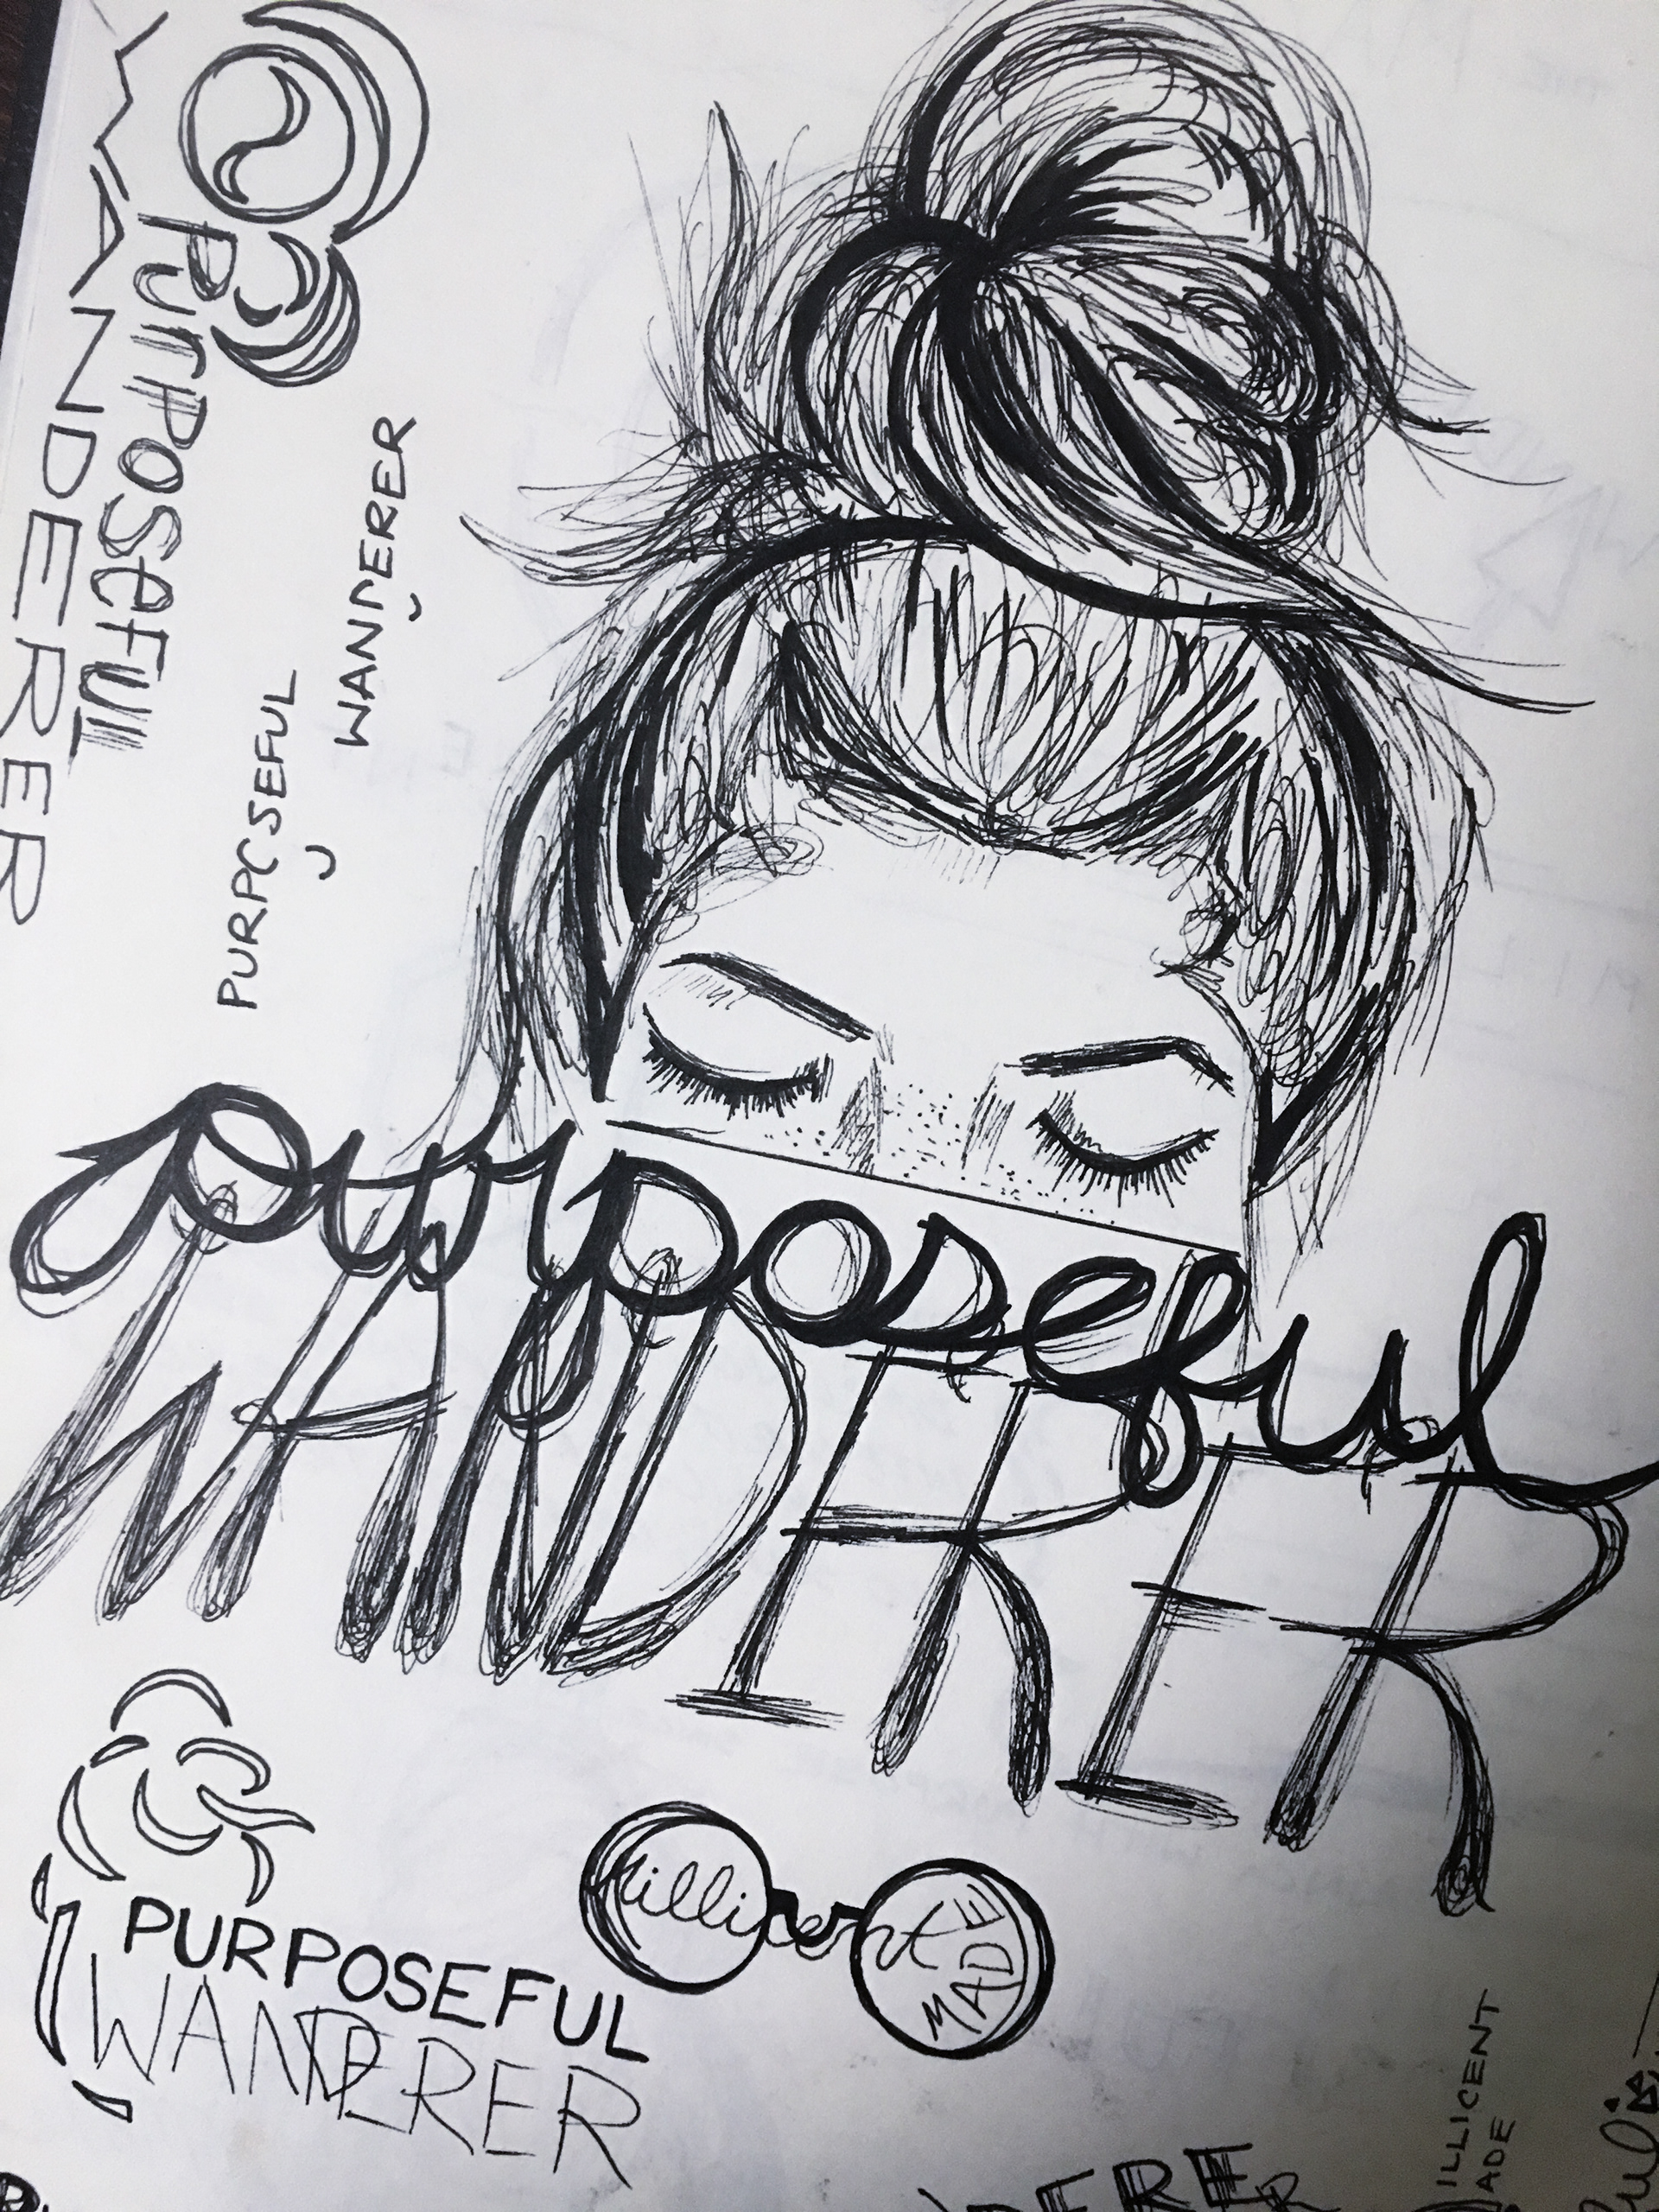 PURPOSEFUL
WANDERER
PURPOSEFUL
WANDERER
purposeful
WANDERER
PURPOSEFUL
WANDERER
Millicent
MADE
ILLICENT
ADE
DERER